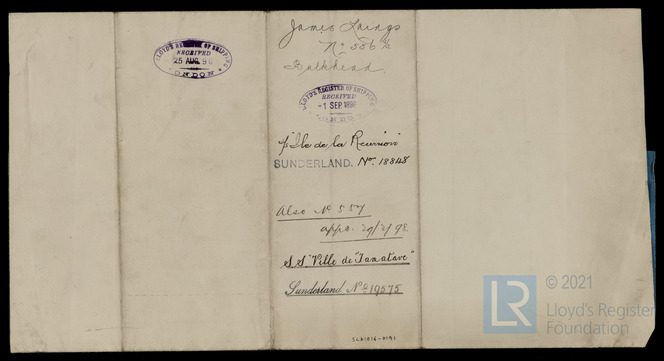 LLOYD'S REGISTER OF SHIPPING
RECEIVED
25 AUG. 98
LONDON
James Laings
No 556
Bulkhead.
LLOYD'S REGISTER OF SHIPPING
RECEIVED
-1 SEP. 1898
Ile de la Reunion
SUNDERLAND. No. 18848
Also No 557
appd. 29/2/98
S.S "Ville de "Tamatave"
Sunderland No 19575
SLD1016-0191
LR
© 2021
Lloyd's Register
Foundation